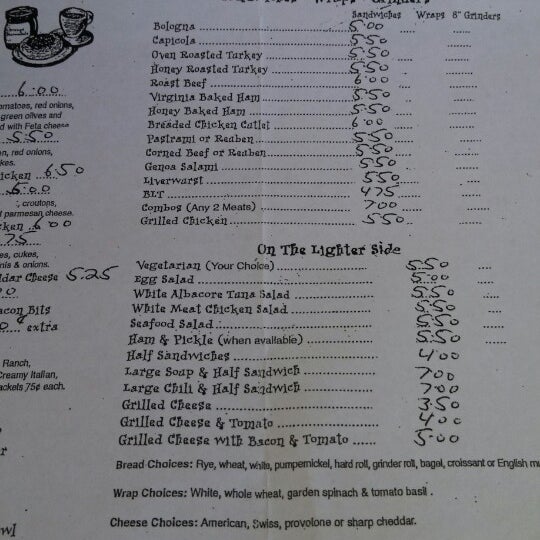 Wraps Grinders
Sandwiches Wraps 8" Grinders
Bologna 5.00
Capicola 5.50
Oven Roasted Turkey 5.50
Honey Roasted Turkey 5.50
Roast Beef 6.00
Virginia Baked Ham 5.50
Honey Baked Ham 5.50
Breaded Chicken Cutlet 6.00
Pastrami or Reuben 5.50
Corned Beef or Reuben 5.50
Genoa Salami 5.50
Liverwurst 5.50
BLT 4.75
Combos (Any 2 Meats) 7.00
Grilled Chicken 5.50
On The Lighter Side
Vegetarian (Your Choice) 5.50
Egg Salad 5.00
White Albacore Tuna Salad 5.50
White Meat Chicken Salad 5.50
Seafood Salad 5.50
Ham & Pickle (when available) 5.50
Half Sandwiches 4.00
Large Soup & Half Sandwich 7.00
Large Chili & Half Sandwich 7.00
Grilled Cheese 3.50
Grilled Cheese & Tomato 4.00
Grilled Cheese with Bacon & Tomato 5.00
Bread Choices: Rye, wheat, white, pumpernickel, hard roll, grinder roll, bagel, croissant or English
Wrap Choices: White, whole wheat, garden spinach & tomato basil.
Cheese Choices: American, Swiss, provolone or sharp cheddar.
6.00
red onions,
green olives and
with Feta cheese
5.50
red onions,
6.50
6.00
croutons,
parmesan cheese.
6.00
75
cukes,
& onions.
Cheese 5.25
Bits
extra
Ranch,
Creamy Italian,
75¢ each.